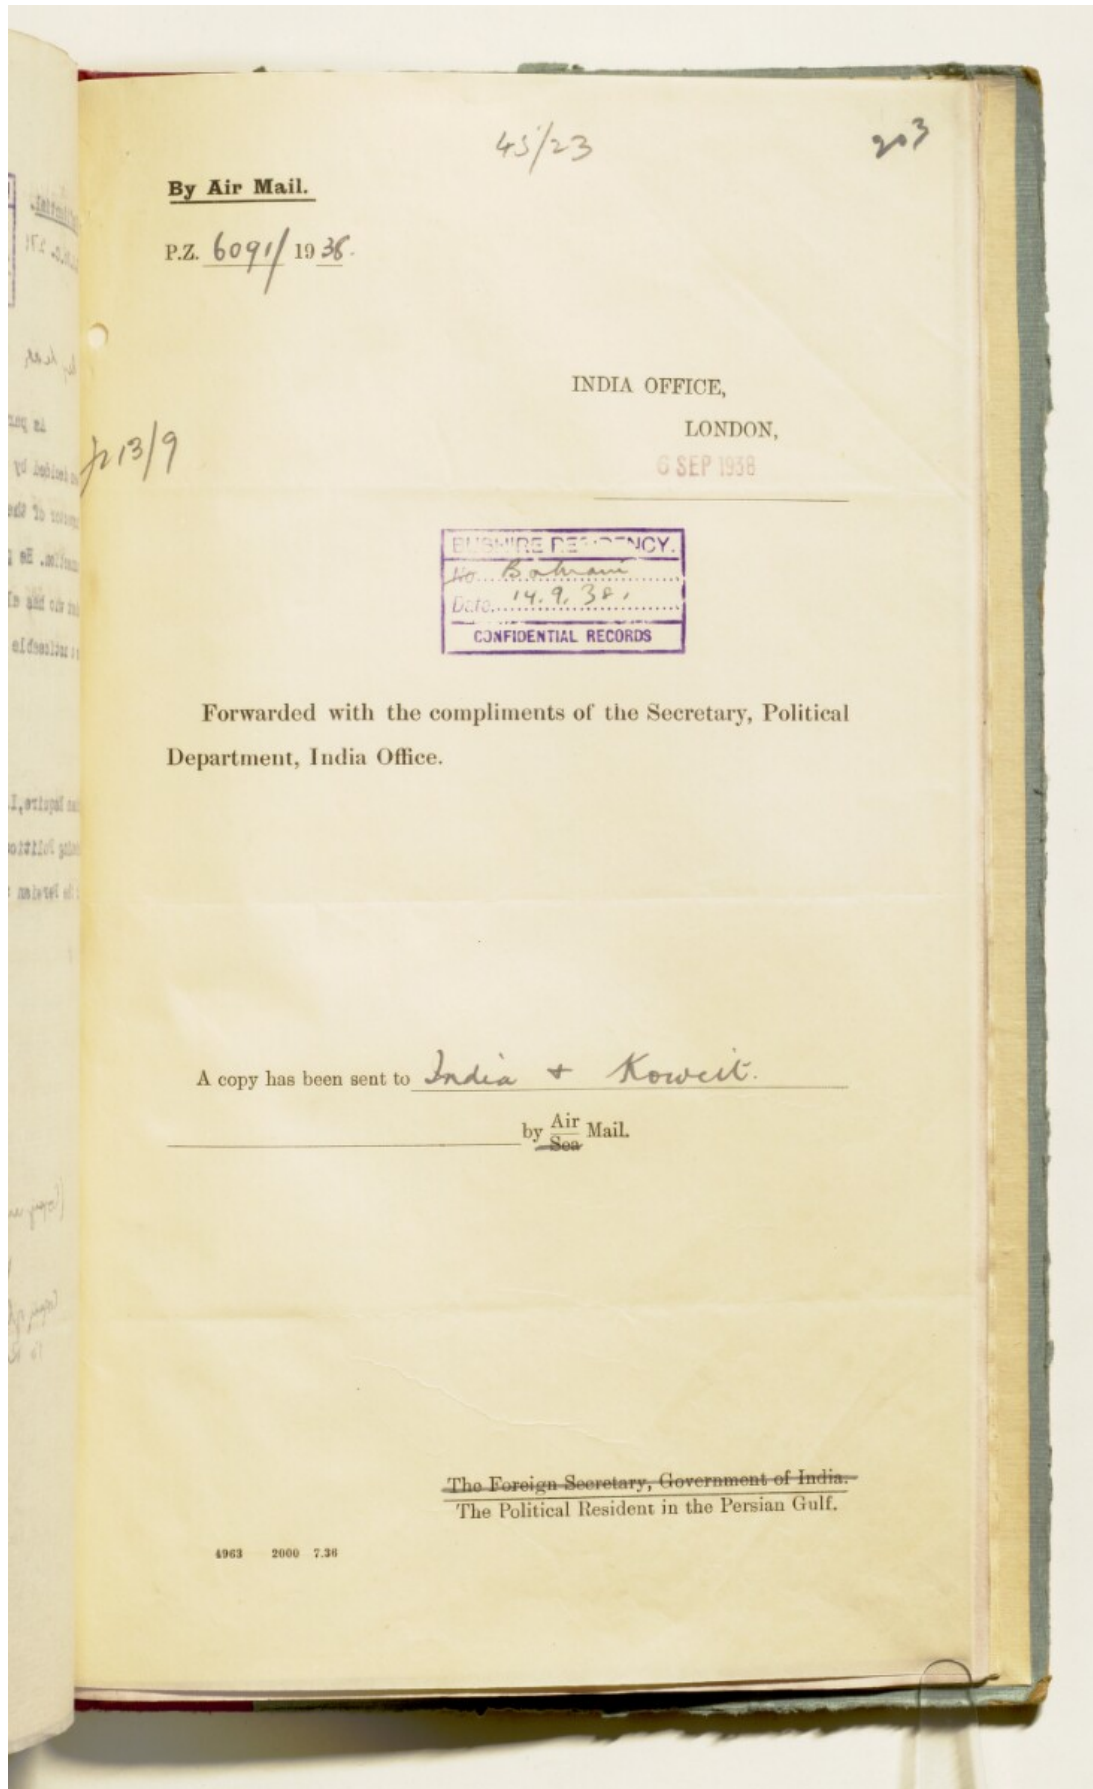 45/23
203
By Air Mail.
P.Z. 6091/ 1938.
INDIA OFFICE,
LONDON,
6 SEP 1938
13/9
BUSHIRE RESIDENCY.
No. Bahrain
Date. 14.9.38.
CONFIDENTIAL RECORDS
Forwarded with the compliments of the Secretary, Political
Department, India Office.
A copy has been sent to India + Koweit.
by Air Mail.
Sea
The Foreign Secretary, Government of India.
The Political Resident in the Persian Gulf.
4963 2000 7.36